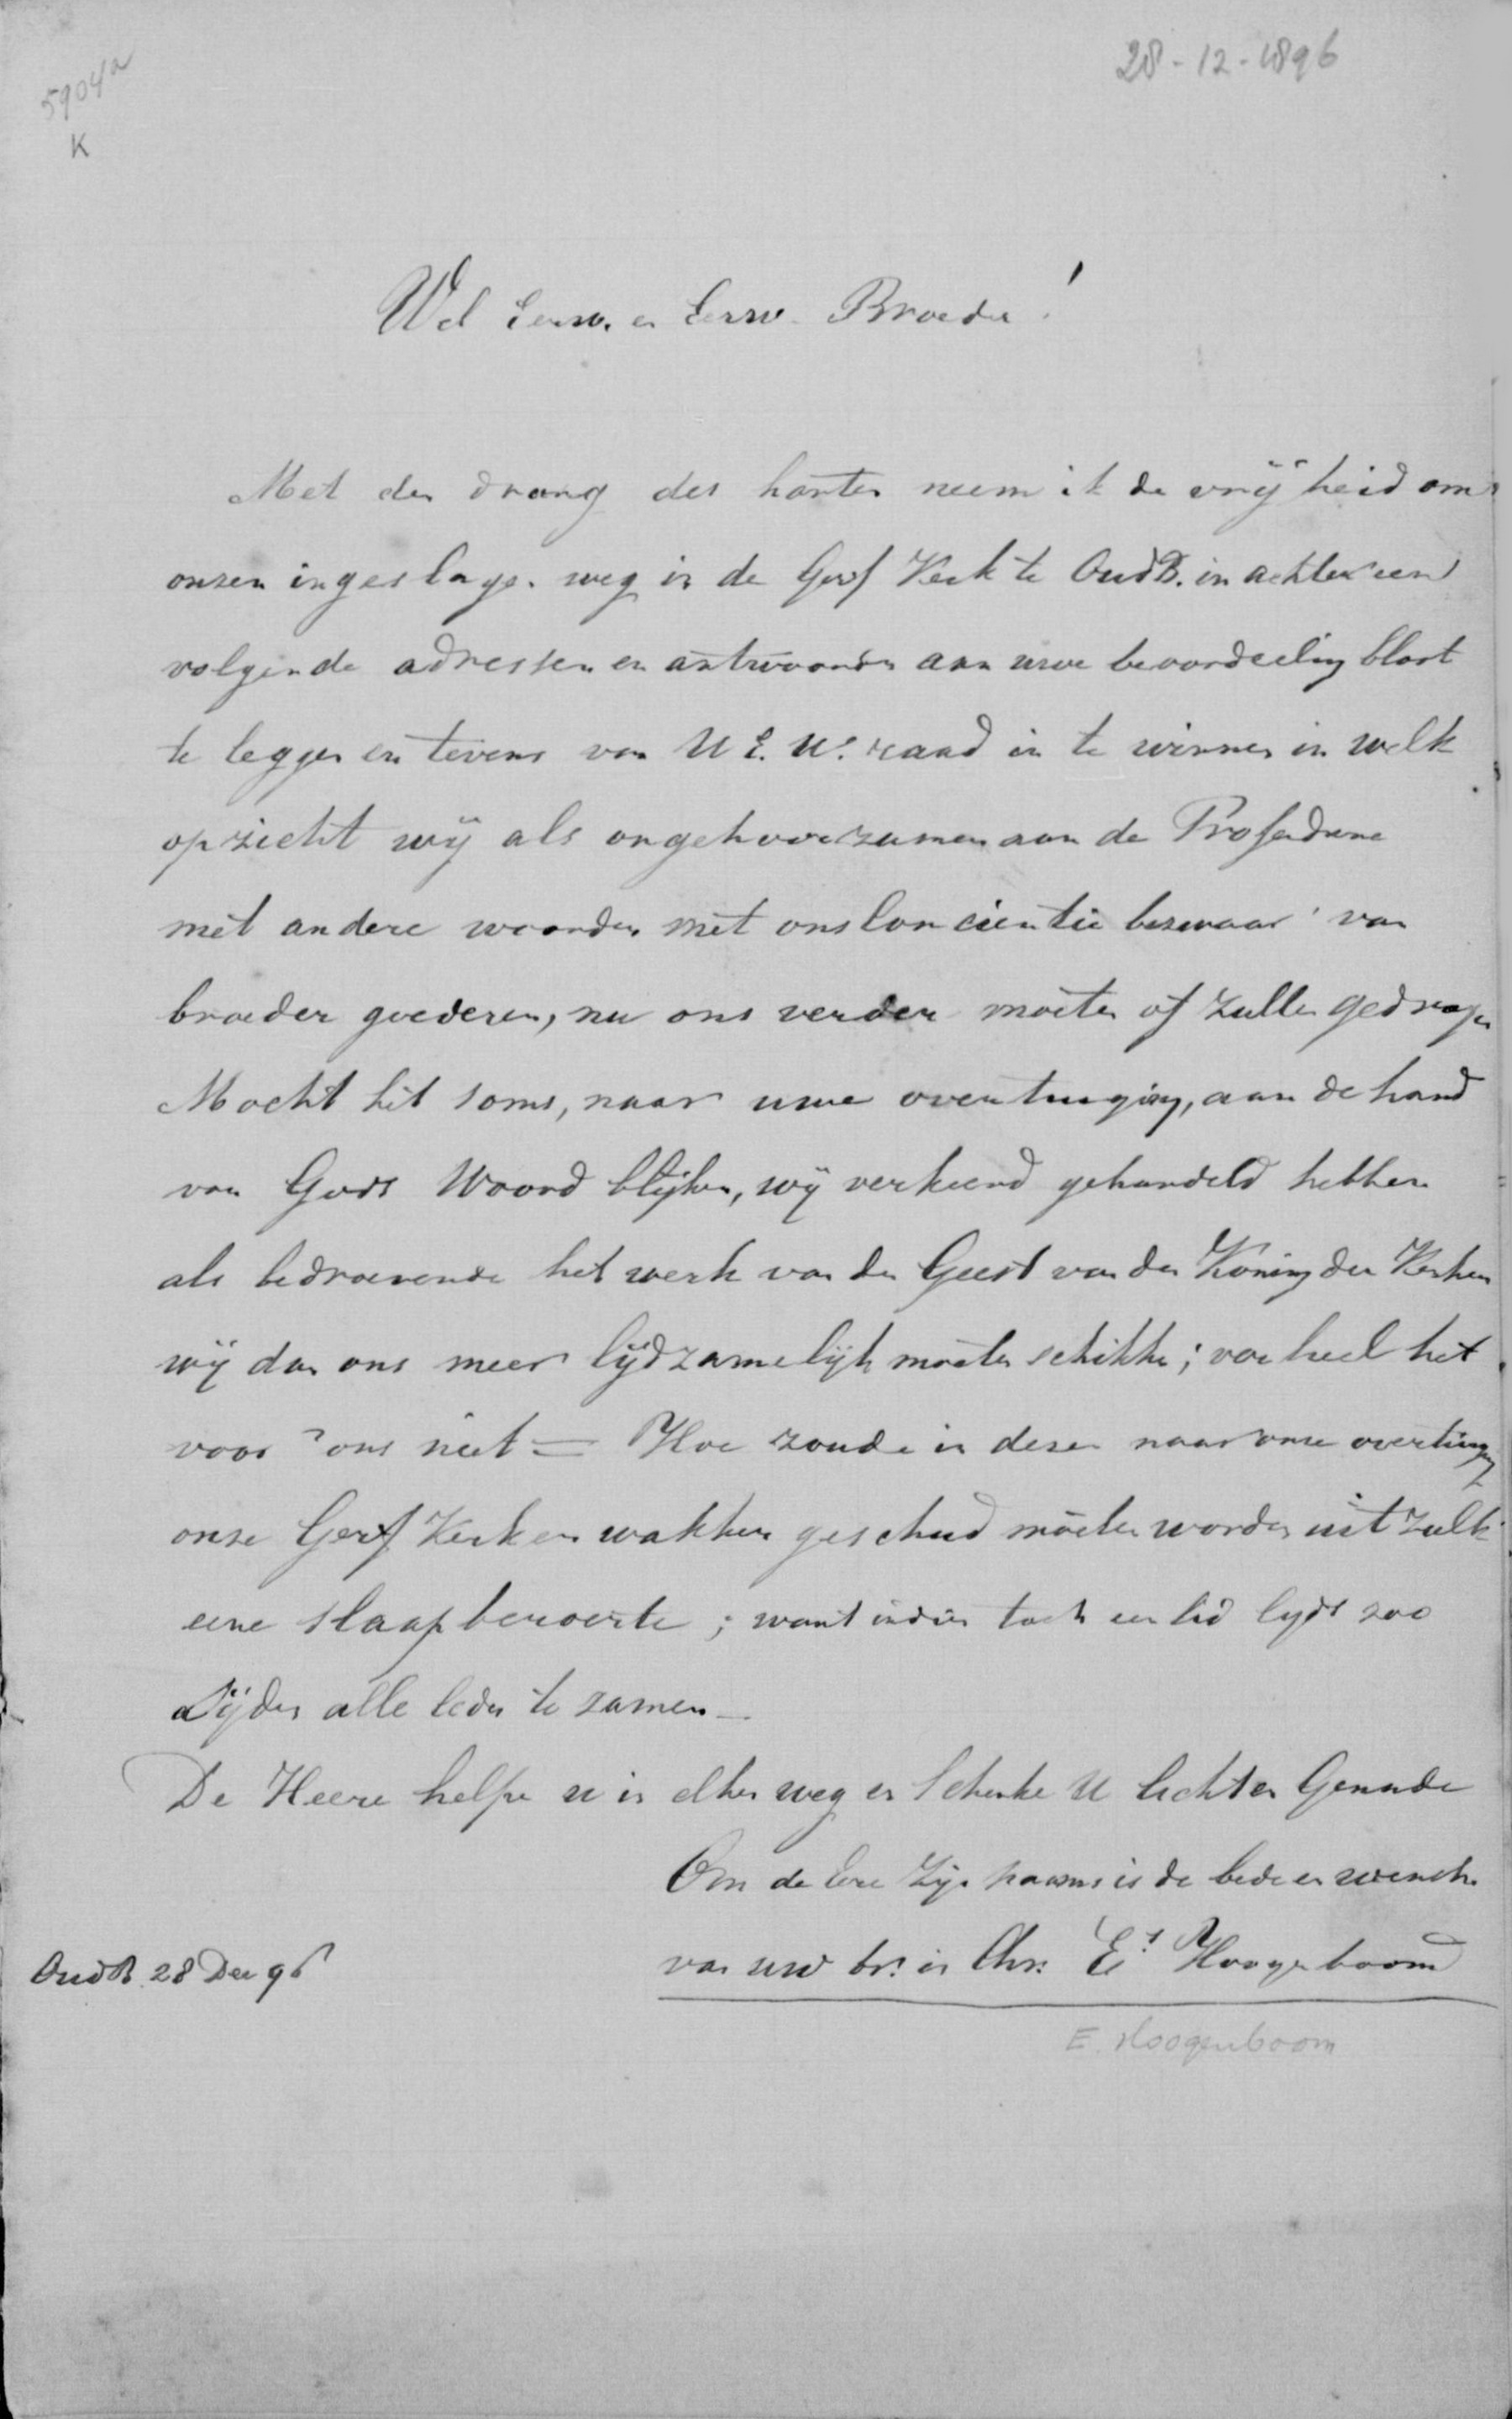 28-12-1896
5904a
K
Wel Eerw. en Eerw. Broeder!
Met den drang des harten neem ik de vrijheid om
onzen ingeslagen weg in de Geref Kerk te OudB. in achtereen
volgende adressen en antwoorden aan uwe beoordeeling bloot
te leggen en tevens van U E. W. raad in te winnen in welk
opzicht wij als ongehoorzamen aan de
met andere woorden met ons Concientie bezwaar van
broeder goederen, nu ons verder moeten of zullen gedragen
Mocht het soms, naar uwe overtuiging, aan de hand
van Gods Woord blijken, wij verkeerd gehandeld hebben
als bedroevende het werk van den Geest van den Koning der Kerken
wij dan ons meer lijdzamelijk moeten schikken; verheel het
voor ons niet = Hoe zoude in dezen naar onze overtuiging
onze Geref Kerken wakker geschud moeten worden uit zulk
eene slaap beroerte; want indien toch een lid lijdt zoo
Lijden alle leden te zamen —
De Heere helpe u in elken weg en Schenke U licht en Genade
Om de Eere Zijn naams is de bede en wensch
van uw br. in Chr. Es Hoogenboom
OudB 28 Dec 96
E. Hoogenboom